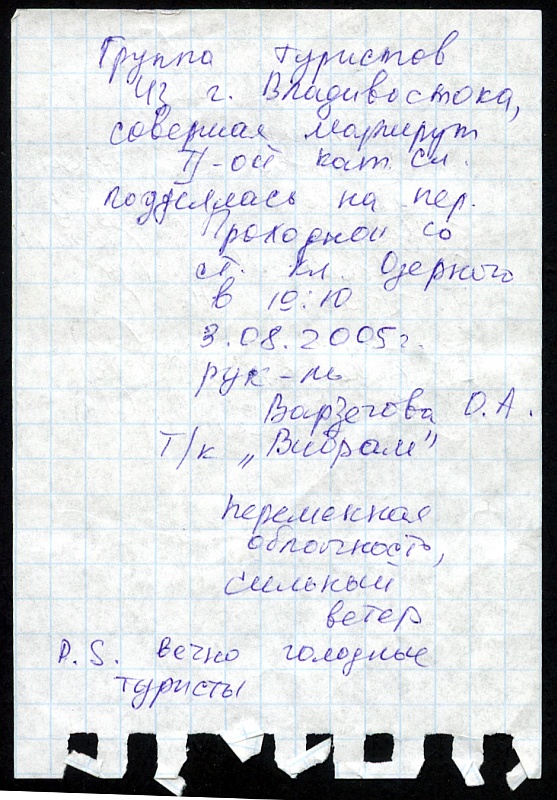 Группа туристов
из г. Владивостока,
совершая маршрут
II-ой кат. сл.
поднялась на пер.
Проходной со
ст. кл. Озерного
в 10:10
3.08.2005г.
рук-ль
Варзегова О.А.
Т/к „Вибрам"
переменная
облачность,
сильный
ветер
P.S. вечно голодные
туристы